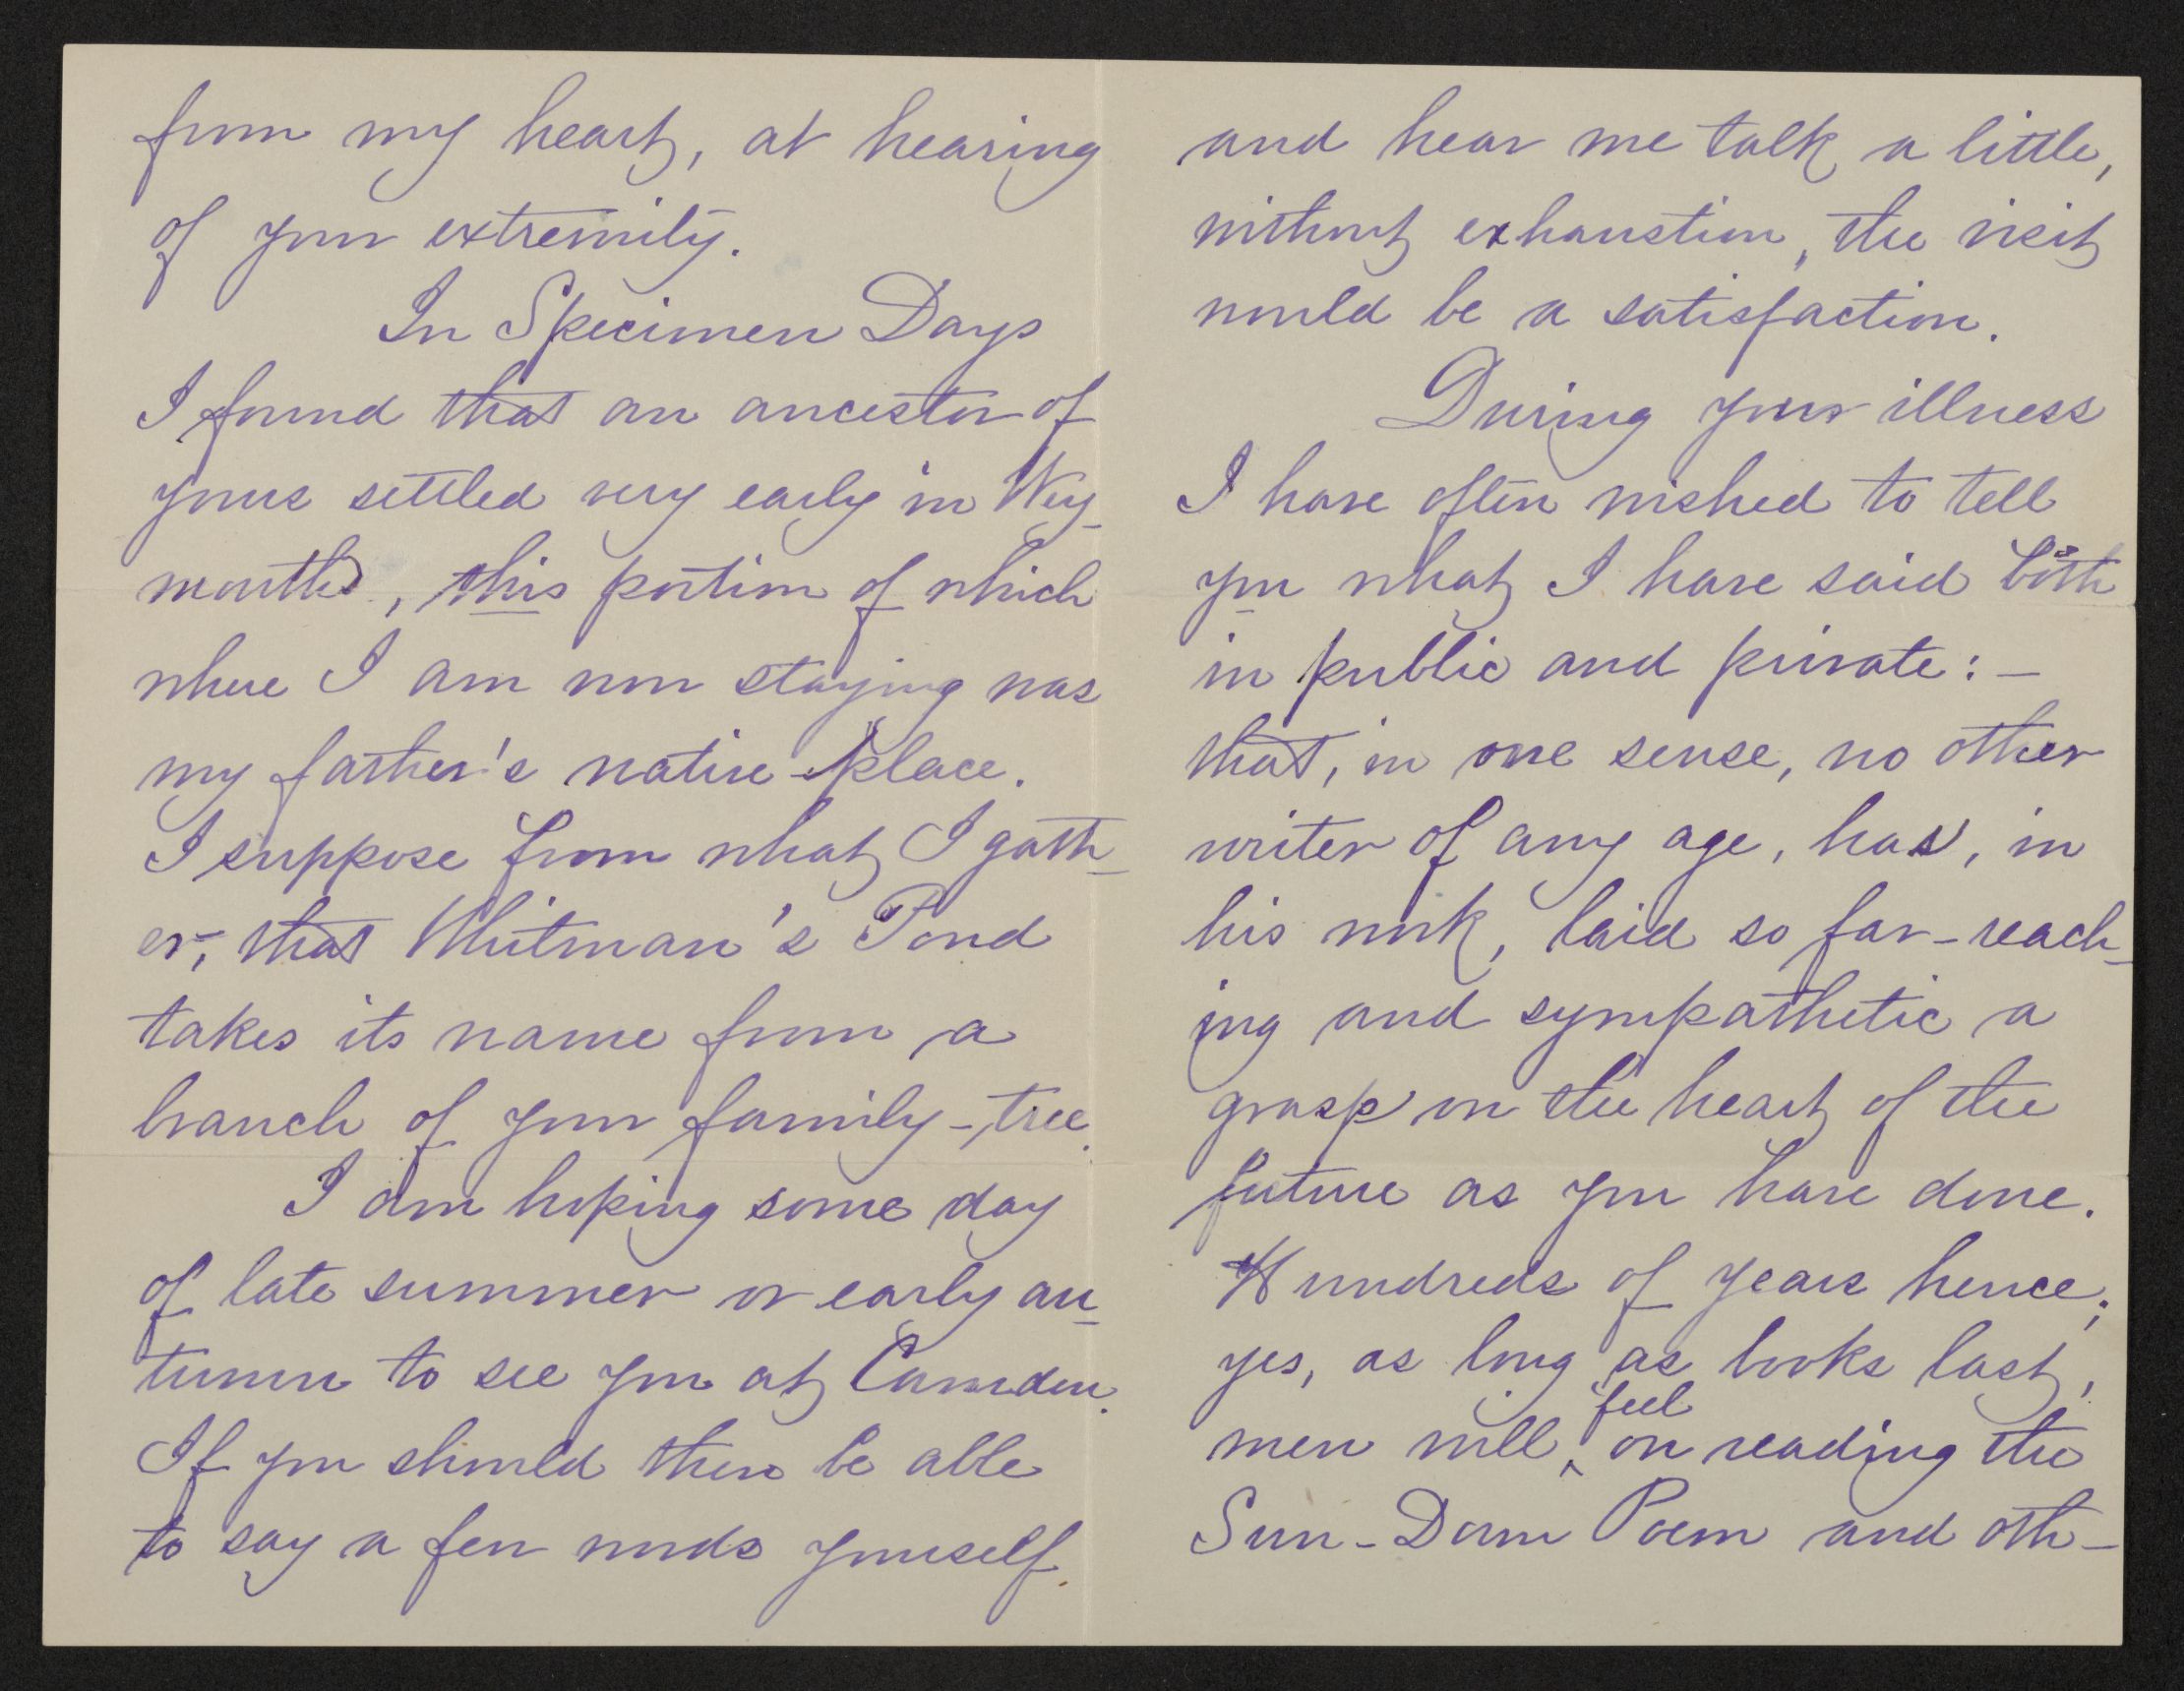 from my heart, at hearing
of your extremity.
In Specimen Days
I found that an ancestor of
yours settled very early in Wey-
mouth, this portion of which
where I am now staying was
my father's native place.
I suppose from what I gath-
er, that Whitman's Pond
takes its name from a
branch of your family-tree.
I am hoping some day
of late summer or early au-
tumn to see you at Camden.
If you should then be able
to say a few words yourself
and hear me talk a little,
without exhaustion, the visit
would be a satisfaction.
During your illness
I have often wished to tell
you what I have said both
in public and private:—
that, in one sense, no other
writer of any age, has, in
his work, laid so far-reach-
ing and sympathetic a
grasp on the heart of the
future as you have done.
Hundreds of years hence;
yes, as long as books last,
feel
men will, on reading the
Sun-Down Poem and oth-